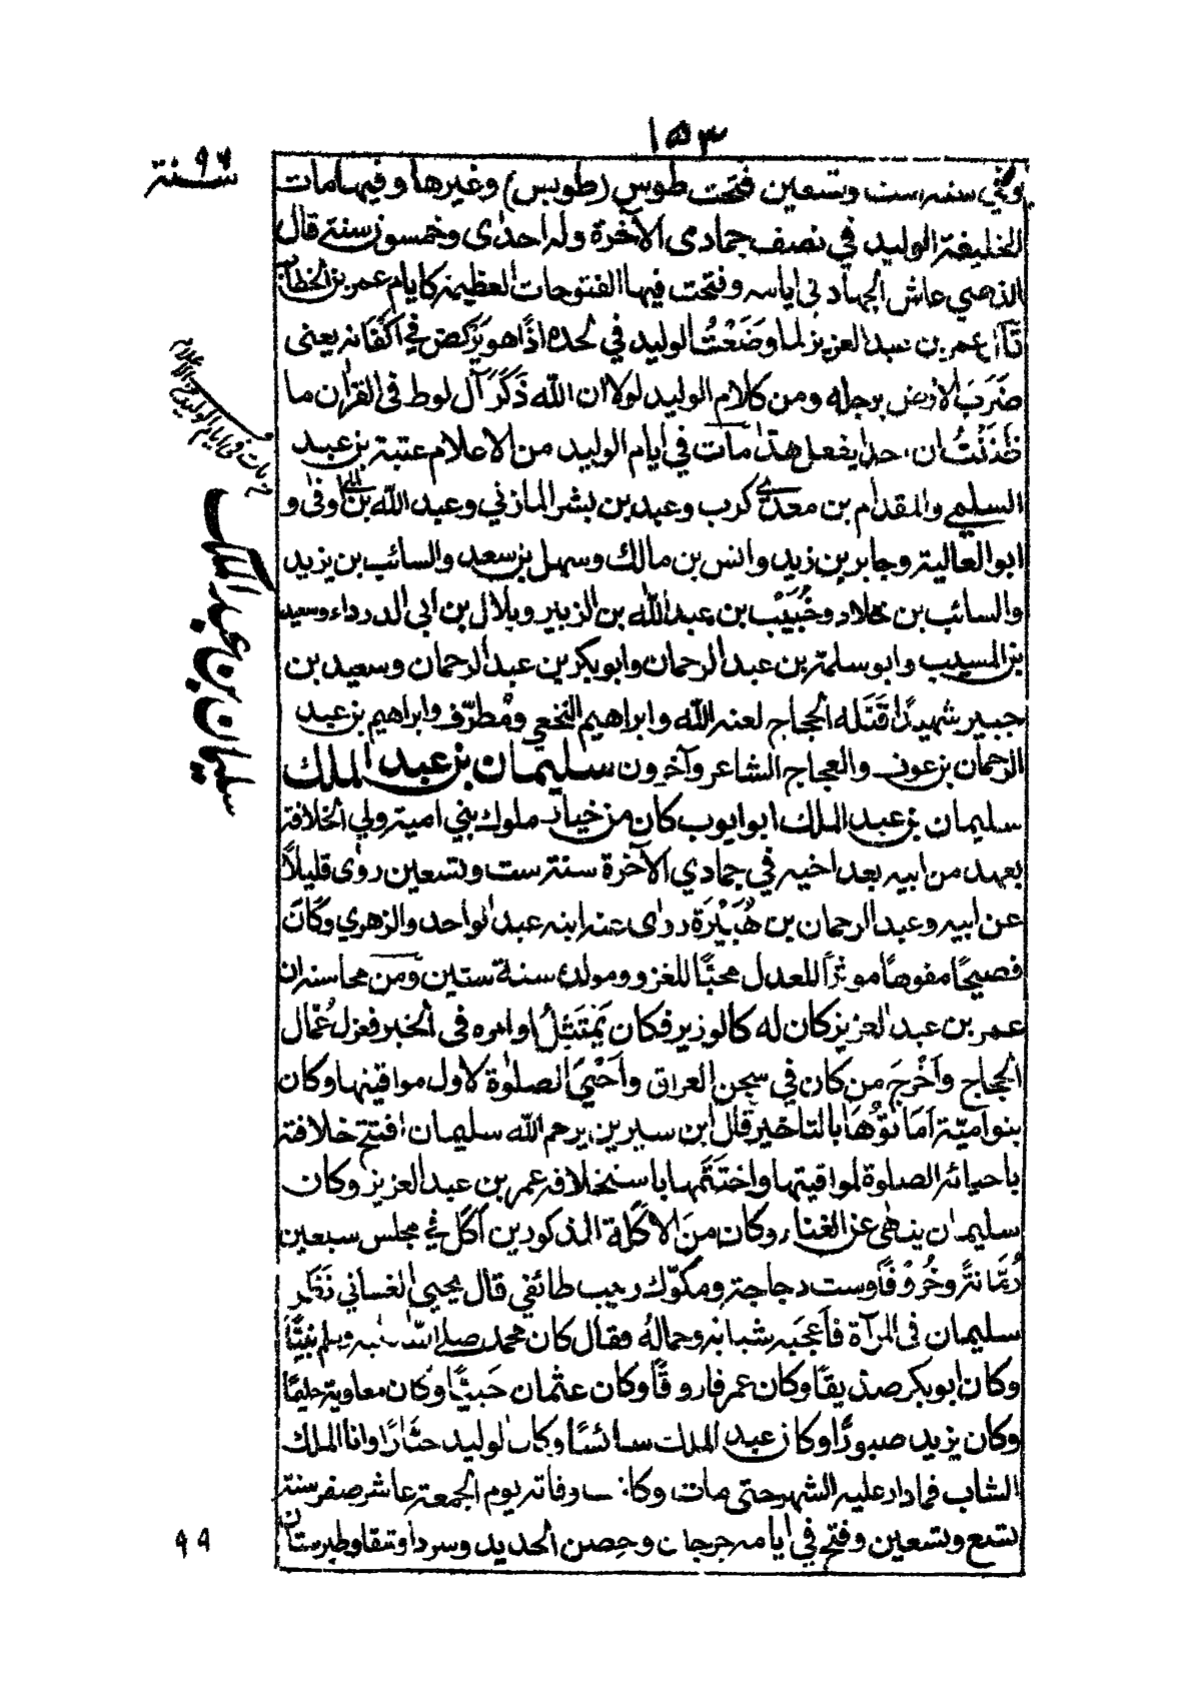 ١٥٣
سنة ٩٦
وفي سنة ست وتسعين فتحت طوس (طوبس) وغيرها وفيها مات
الخليفة الوليد في نصف جمادى الآخرة وله احدى وخمسون سنة قال
الذهبي عاش الجهاد في ايامه وفتحت فيها الفتوحات العظيمة كايام عمر بن الخطاب
قال عمر بن عبد العزيز لما وَضَعْتُ الوليد في لحده اذا هو يَرْكض في اكفانه يعنى
ضَرَبَ الارض برجله ومن كلام الوليد لولا ان الله ذَكَرَ آل لوط فى القرآن ما
ظَنَنْتُ ان احدا يفعل هذا مات في ايام الوليد من الاعلام عتبة بن عبد
السليمي والمقدام بن معدي كرب وعبد بن بشر المازني وعبد الله بن ابي اوفى و
ابو العالية وجابر بن زيد وانس بن مالك وسهل بن سعد والسائب بن يزيد
والسائب بن خلاد وخُبَيْب بن عبد الله بن الزبير وبلال بن ابى الدرداء وسعيد
بن المسيب وابو سلمة بن عبد الرحمان وابو بكر بن عبد الرحمان وسعيد بن
جبير شهيدًا قَتَلَه الحجاج لعنه الله وابراهيم النخعي ومُطرّف وابراهيم بن عبد
الرحمان بن عوف والعجاج الشاعر وآخرون سليمان بن عبد الملك
سليمان بن عبد الملك ابو ايوب كان من خيار ملوك بني امية ولي الخلافة
بعهد من ابيه بعد اخيه في جمادي الآخرة سنة ست وتسعين روى قليلاً
عن ابيه وعبد الرحمان بن هُبَيْرَة روى عنه ابنه عبد الواحد والزهري وكَانَ
فصيحًا مفوهًا موثراً للعدل محبًّا للغزو ومولده سنة ستين ومن محاسنه ان
عمر بن عبد العزيز كان له كالوزير فكان يَمْتَثِلُ اوامره فى الخير فعزل عُمّال
الحجاج وأخْرَجَ من كان في سجن العراق وأحْيىَ الصلوٰة لاول مواقيتها وكان
بنو اميّة اَمَاتُوْهَا بالتاخير قال ابن سيرين يرحم الله سليمان افتتح خلافته
باحيائه الصلوة لمواقيتها واختَتَمها باستخلافه عمر بن عبد العزيز وكان
سليمان ينهى عن الغناء وكان مِنَ الاكَلة المذكورين اَكَل في مجلس سبعين
رُمّانةً وخُرُوْفًا وست دجاجة ومكّوك زبيب طائفي قال يحيى الغساني نَظَر
سليمان فى المرآة فأعجبَه شبابه وجمالُه فقال كان محمد صلى الله عليه وسلم نبيًّا
وكان ابو بكر صديقًا وكان عمر فاروقًا وكان عثمان حَييًّا وكان معاوية حليمًا
وكان يزيد صبورًا وكان عبد الملك سائسًا وكان الوليد جبّارًا وانا الملك
الشاب فما دار عليه الشهر حتى مات وكانت وفاته يوم الجمعة عاشر صفر سنة
تسع وتسعين وفتح في ايامه جرجان وحصن الحديد وسردا وشقا وطبرستان
من مات فى ايام الوليد من الاعلام
سليمان بن عبد الملك
٩٩